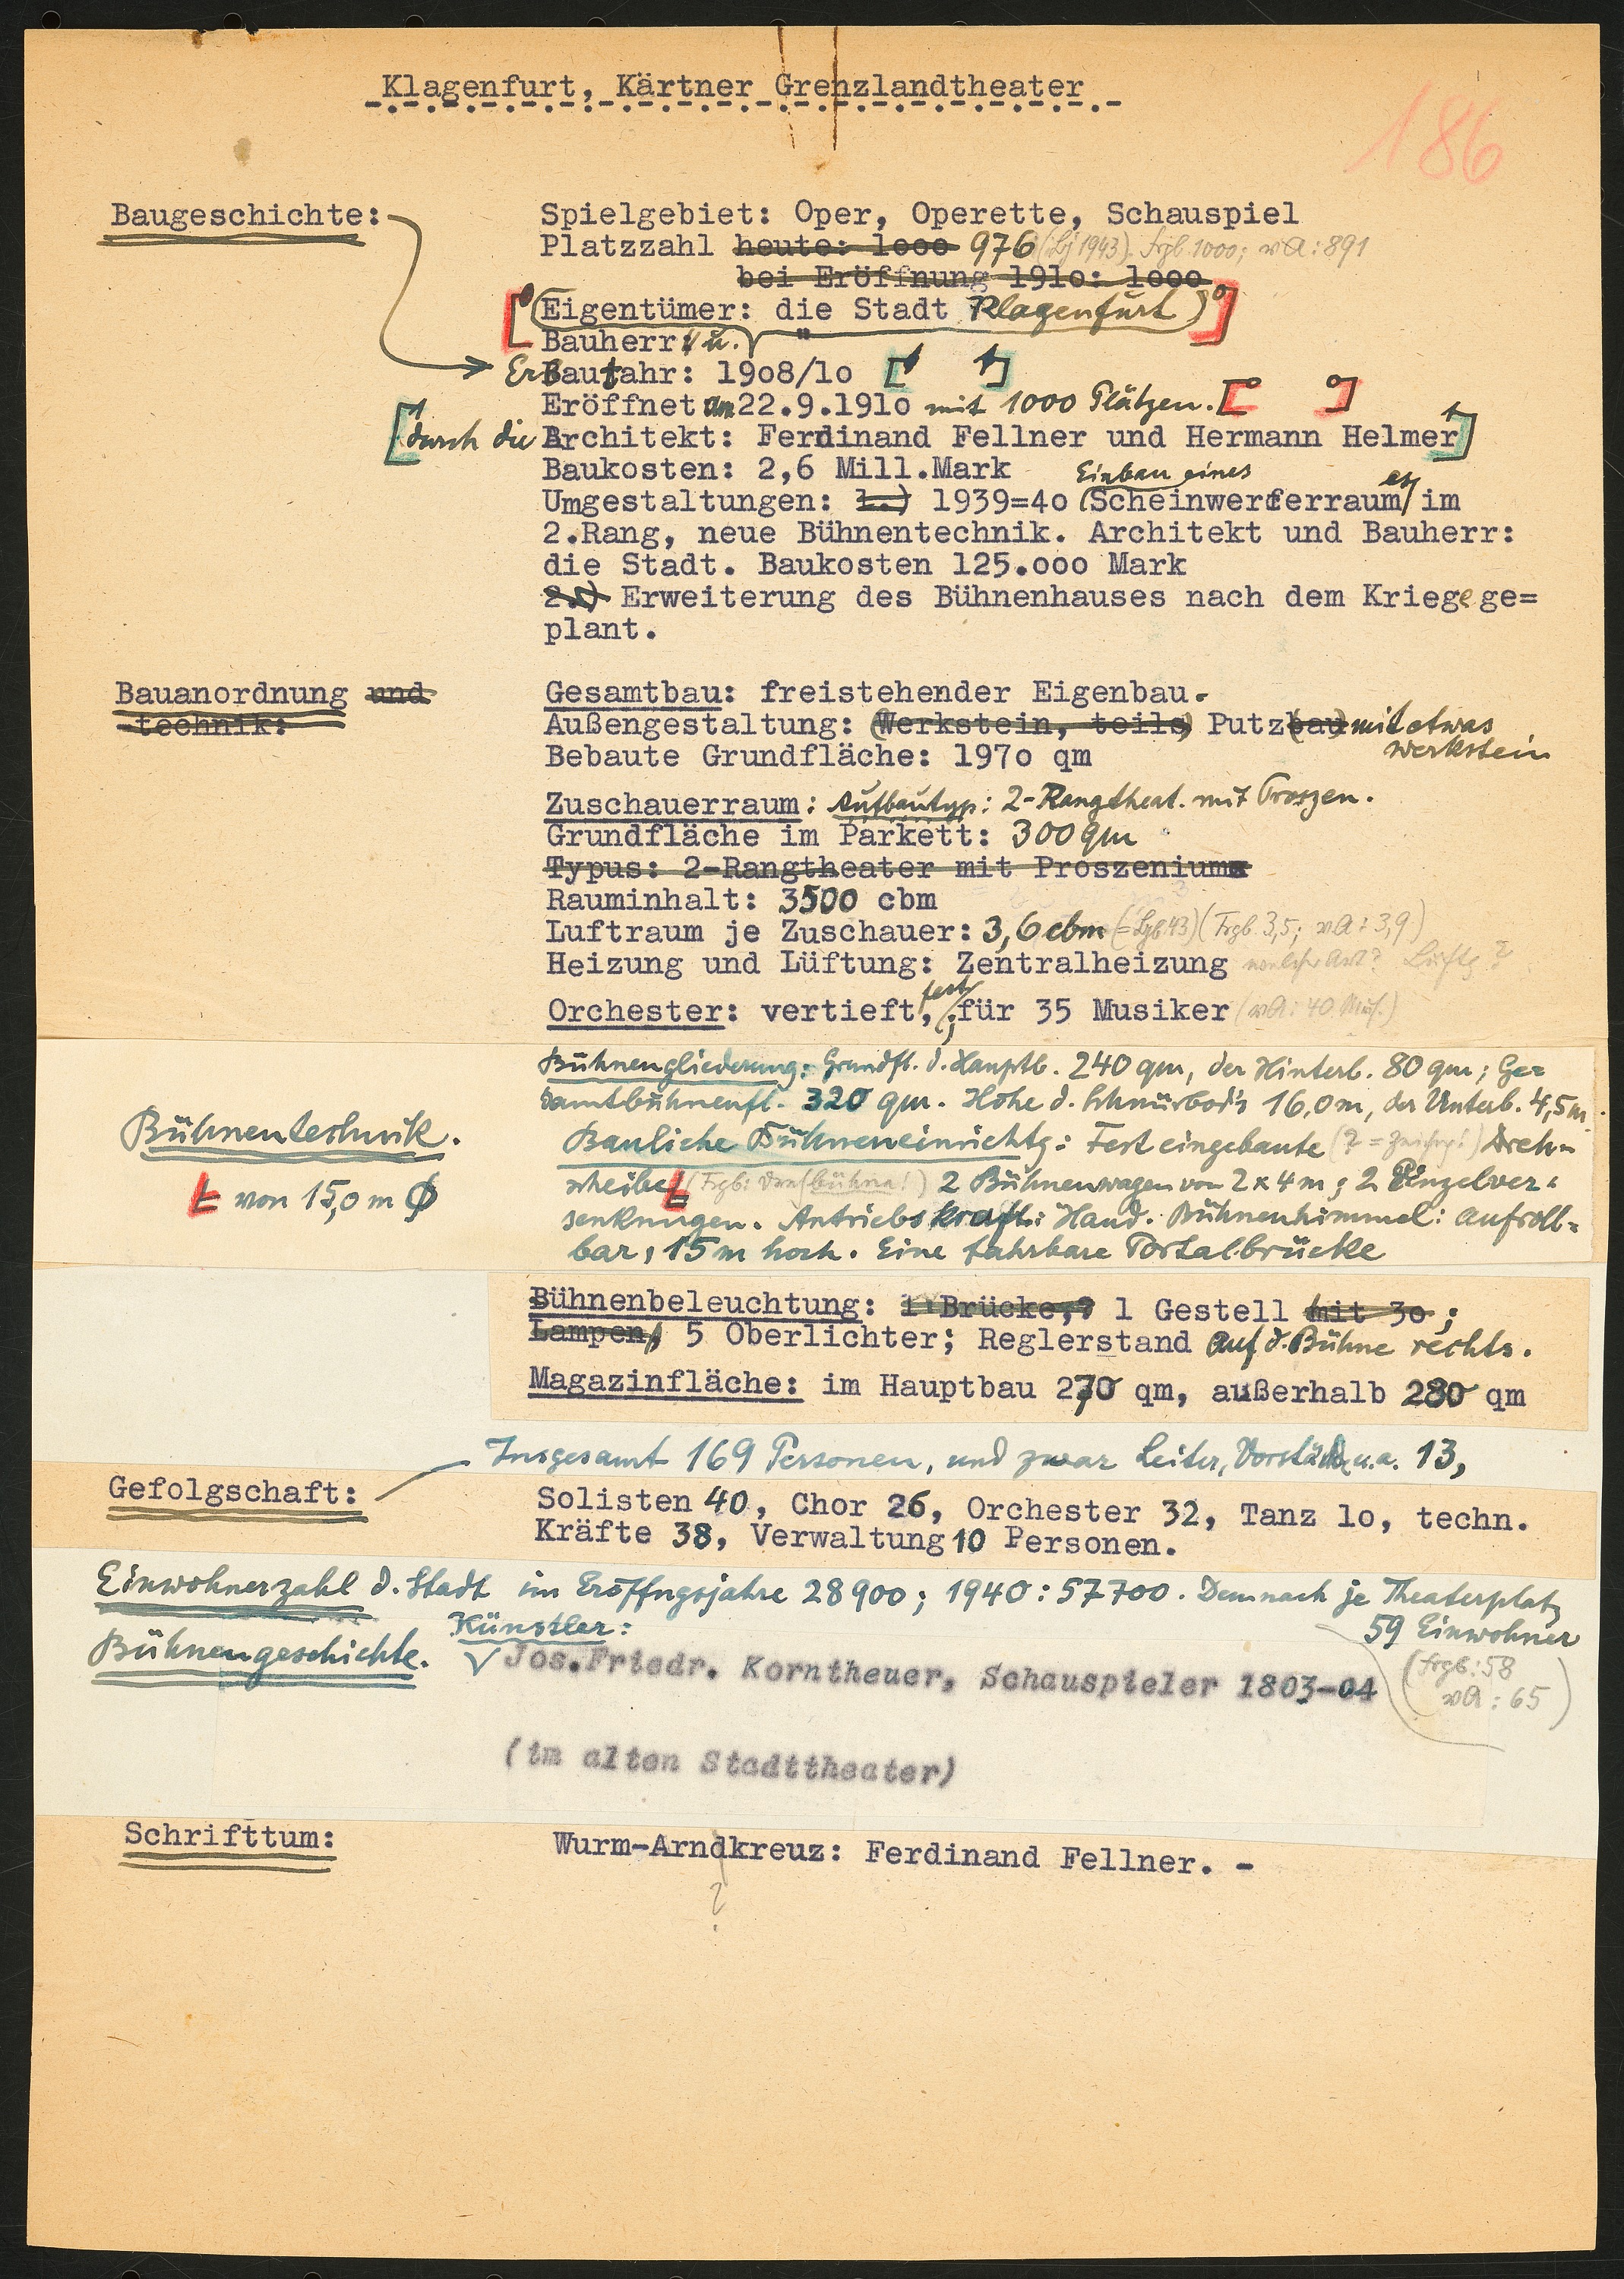 Klagenfurt, Kärtner Grenzlandtheater
186
Baugeschichte:
Spielgebiet: Oper, Operette, Schauspiel
Platzzahl heute: 1ooo 976 (Lj 1943). Frgb. 1000; vA: 891
bei Eröffnung 191o: 1ooo
Eigentümer: die Stadt Klagenfurt
Bauherr: u. "
Erbaut ahr: 19o8/1o
Eröffnet am 22.9.191o mit 1000 Plätzen.
durch die Architekt: Ferdinand Fellner und Hermann Helmer
Baukosten: 2,6 Mill.Mark
Einbau eines
Umgestaltungen: 1.) 1939=4o (Scheinwerferraum es im
2.Rang, neue Bühnentechnik. Architekt und Bauherr:
die Stadt. Baukosten 125.ooo Mark
2.) Erweiterung des Bühnenhauses nach dem Kriege ge=
plant.
Bauanordnung und
-technik:
Gesamtbau: freistehender Eigenbau.
Außengestaltung: (Werkstein, teils) Putz(bau) mit etwas
Werkstein
Bebaute Grundfläche: 197o qm
Zuschauerraum: Aufbautyp: 2-Rangtheat. mit Proszen.
Grundfläche im Parkett: 300 qm
Typus: 2-Rangtheater mit Proszenium
Rauminhalt: 3500 cbm
Luftraum je Zuschauer: 3,6 cbm (=Lgb.43) (Frgb. 3,5; vA: 3,9)
Heizung und Lüftung: Zentralheizung welcher Art? Lüftg?
Orchester: vertieft, fest, für 35 Musiker (vA: 40 Mus.)
Bühnengliederung: Grundfl. d. Hauptb. 240 qm, der Hinterb. 80 qm; Ge=
samtbühnenfl. 320 qm. Höhe d. Schnürbod's 16,0 m, der Unterb. 4,5 m.
Bühnentechnik.
Bauliche Bühneneinrichtg: Fest eingebaute Dreh=
scheibe (Frgb: Drehbühne!) 2 Bühnenwagen von 2x4 m; 2 Einzelver=
von 15,0 m Ø
senkungen. Antriebskraft: Hand. Bühnenhimmel: aufroll=
bar, 15 m hoch. Eine fahrbare Portalbrücke
Bühnenbeleuchtung: 1 Brücke, 1 Gestell mit 3o;
Lampen, 5 Oberlichter; Reglerstand auf d. Bühne rechts.
Magazinfläche: im Hauptbau 270 qm, außerhalb 280 qm
Insgesamt 169 Personen, und zwar Leiter, Vorstände u.a. 13,
Gefolgschaft:
Solisten 40, Chor 26, Orchester 32, Tanz 1o, techn.
Kräfte 38, Verwaltung 10 Personen.
Einwohnerzahl d. Stadt im Eröffngsjahre 28900; 1940: 57700. Demnach je Theaterplatz
59 Einwohner
Künstler:
Bühnengeschichte.
Jos.Friedr. Korntheuer, Schauspieler 1803-04
(frgb: 58
vA: 65)
(im alten Stadttheater)
Schrifttum:
Wurm-Arndkreuz: Ferdinand Fellner. -
?